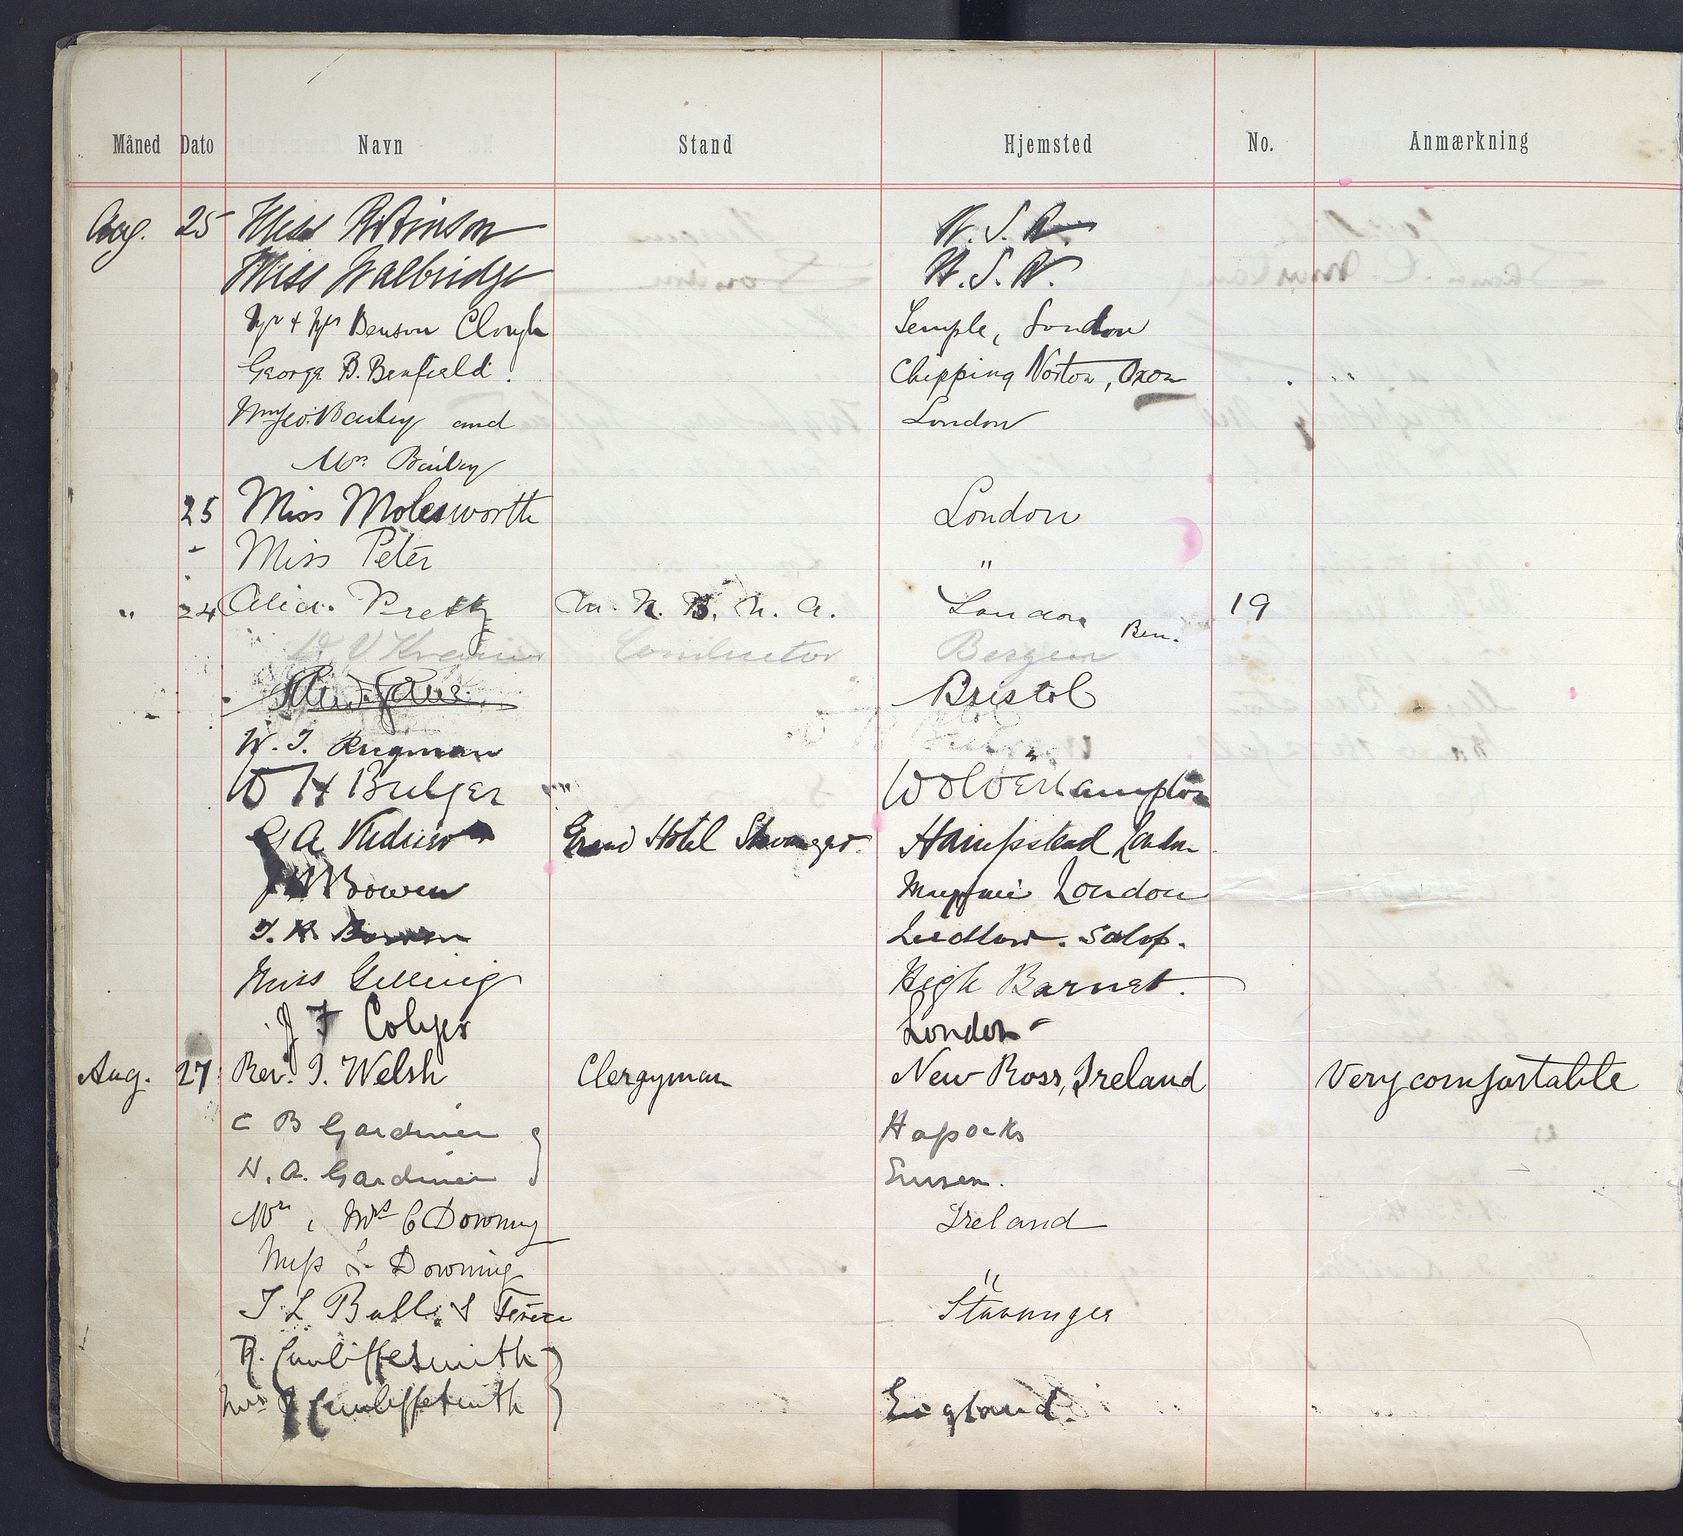 Måned Dato Navn Stand Hjemsted No. Anmærkning
Aug. 25 Miss Robinson
Miss Walbridge
Mr + Mrs Benson Clough Temple, London
George B. Benfield. Chipping Norton, Oxon
Bailey and London
Mrs Bailey
25 Miss Molesworth London
- Miss Peter "
" 24 Alice Pretty M. R. B. N. A. London 19
Ben.
Conductor Bergen
Bristol
W. J. Rugman
W H Bulger Wolverhampton
G A Grand Hotel Stavanger Hampstead London
Bowen London
T. H. Bowen Ludlow. Salop.
Miss Gilling High Barnet.
J F Colyer London
Aug. 27 Rev. J. Welsh Clergyman New Ross, Ireland Very comfortable
C B Gardiner
H. A. Gardiner
Mr, Mrs C Downing Ireland
Miss L Downing "
T L Bull & Stavanger
R. Cunliffe Smith
Mrs Cunliffe Smith England.